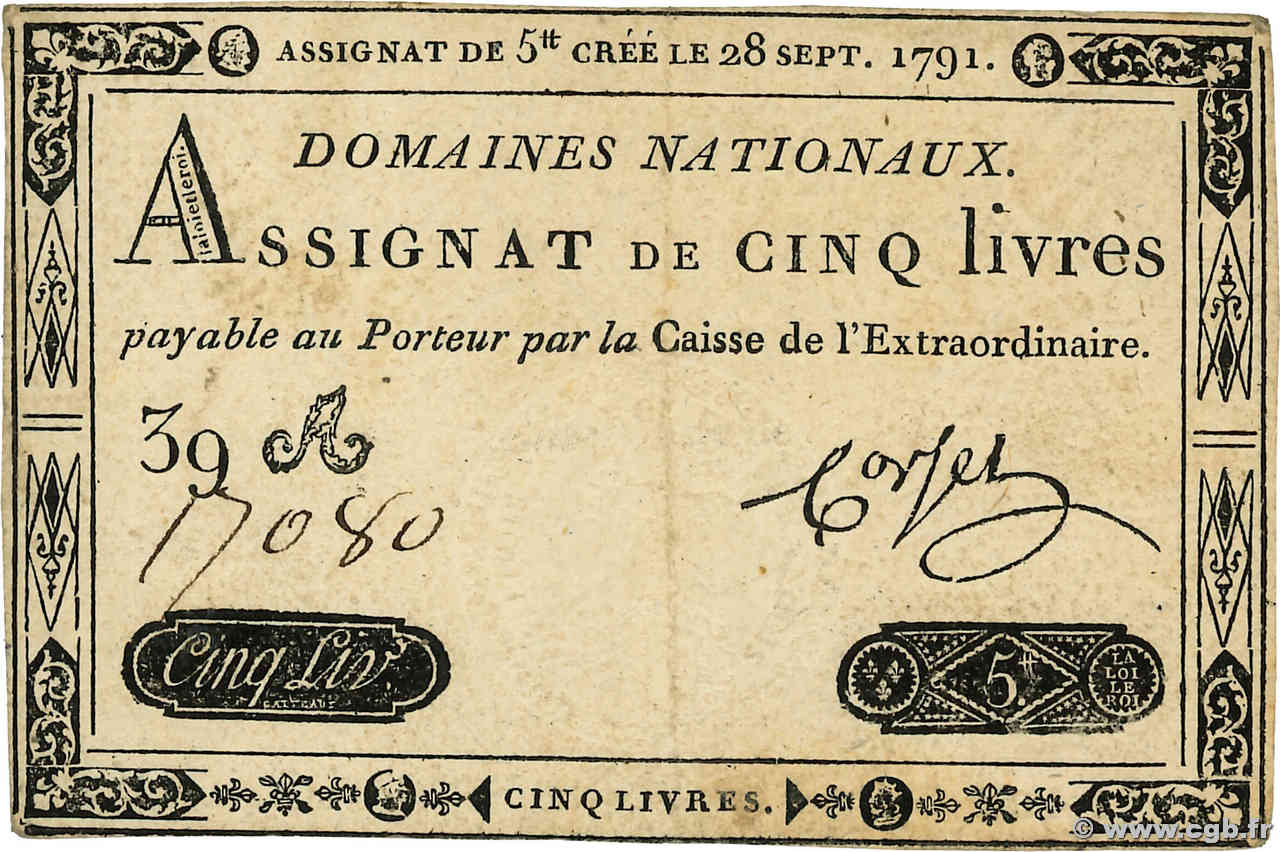 ASSIGNAT DE 5tt CRÉÉ LE 28 SEPT. 1791.
DOMAINES NATIONAUX.
ASSIGNAT DE CINQ livres
laloietleroi.
payable au Porteur par la Caisse de l'Extraordinaire.
39 A
17080
Corsel
Cinq Liv.
GATTEAUX
5tt
LA
LOI
LE
ROI
CINQ LIVRES.
© www.cgb.fr